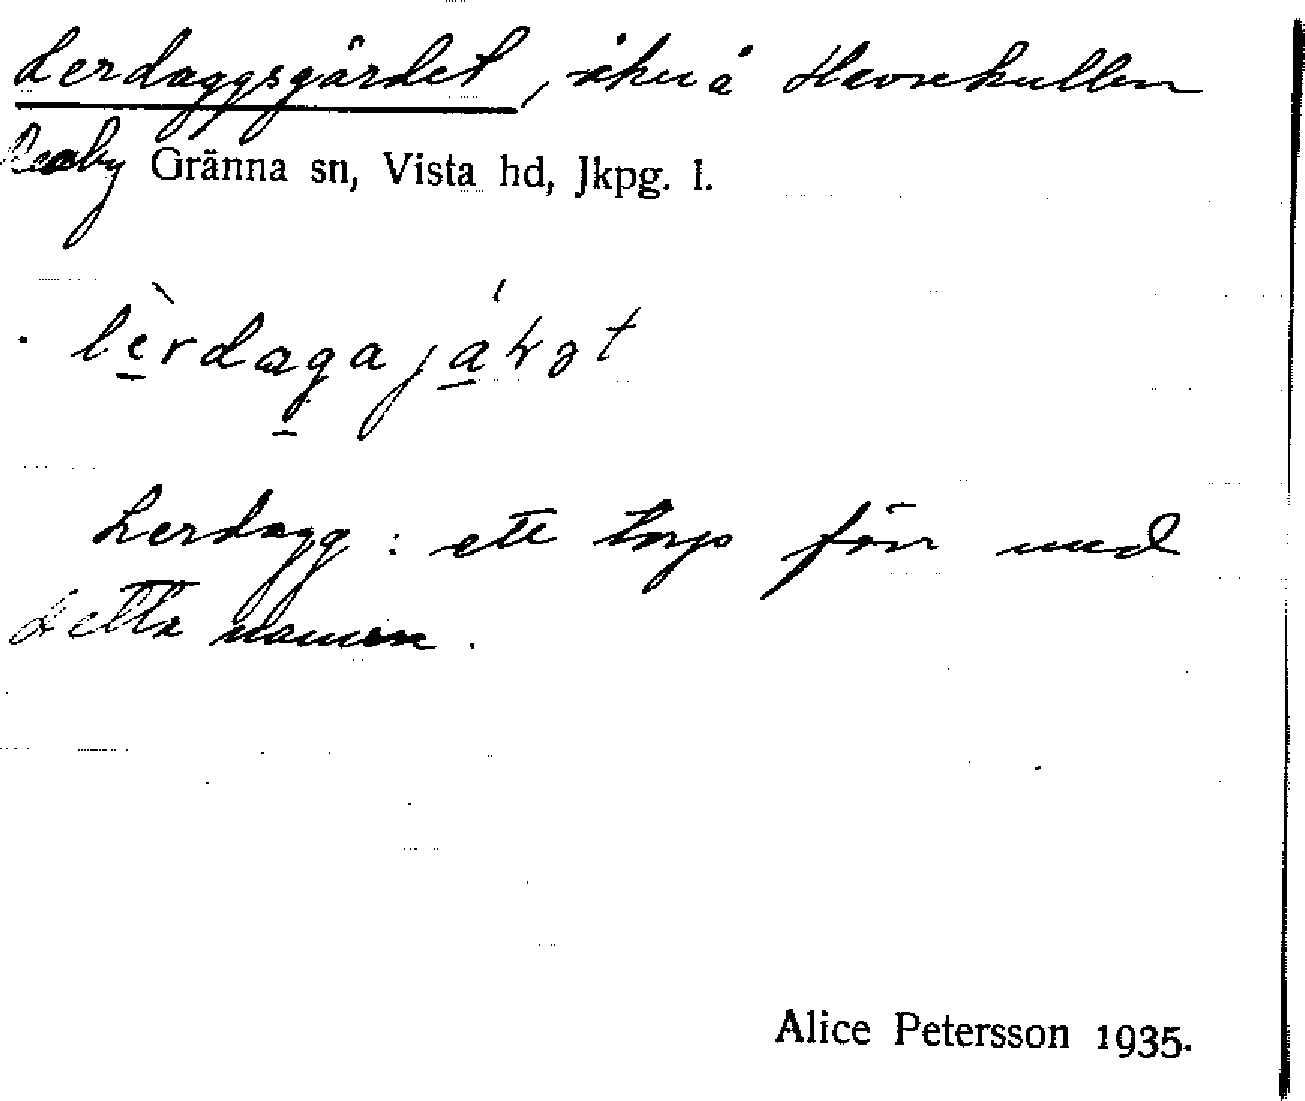 Lerdaggsgärdet, åker å Havrekullen
Gränna sn, Vista hd, Jkpg. l.
lèrdagajárət
Lerdagg: ett torp förr med
detta namn.
Alice Petersson 1935.